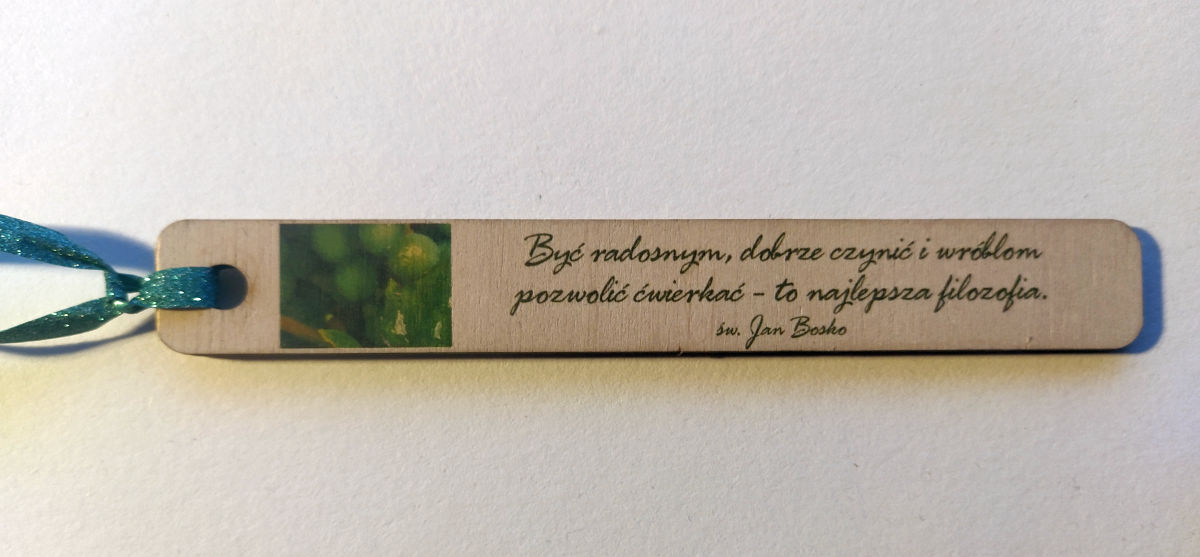 Być radosnym, dobrze czynić i wróblom
pozwolić ćwierkać - to najlepsza filozofia.
św. Jan Bosko